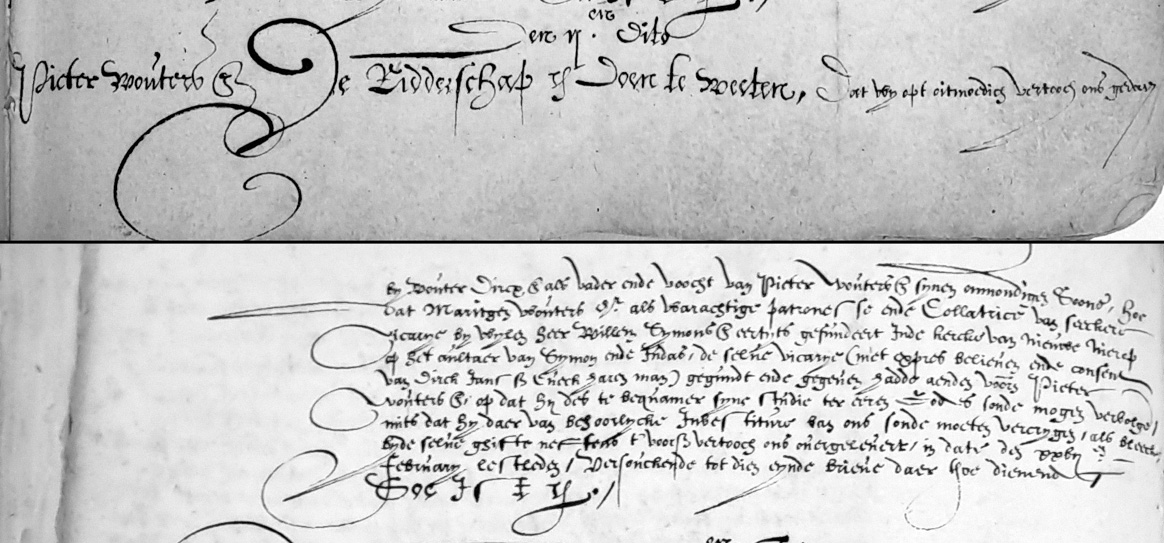 Den ij en dito
Pieter Wouters &
De Ridderschap & Doen te Weeten, Dat wy opt oitmoedich vertooch ons gedaen
by Wouter Dircx & als vader ende voocht van Pieter Wouters & synen onmondigen Soons, hoe
dat Maritgen Wouters Dr als waerachtige patronersse ende Collatrice van seeckere
vicarye by wylen heer Willem Symons & eertyts gefundeert Inde kercke van Nieuwe Nierop
op het aultaer van Symon ende Judas, de selve vicarye (met expres believen ende consent
van Dirck Jans haren man) gegundt ende gegeven hadde aenden voors Pieter
Wouters & op dat hy des te bequamer syne studie ter eeren Godes soude mogen vervolgen,
mits dat hy daer van behoorlycke Investiture van ons soude moeten vercrygen, als bleeck
byde selve ghifte neffens t voors vertooch ons overgelevert, in date den xxvij
february lestleden, Versouckende tot dien eynde brieve daer toe dienende
Soe Ist